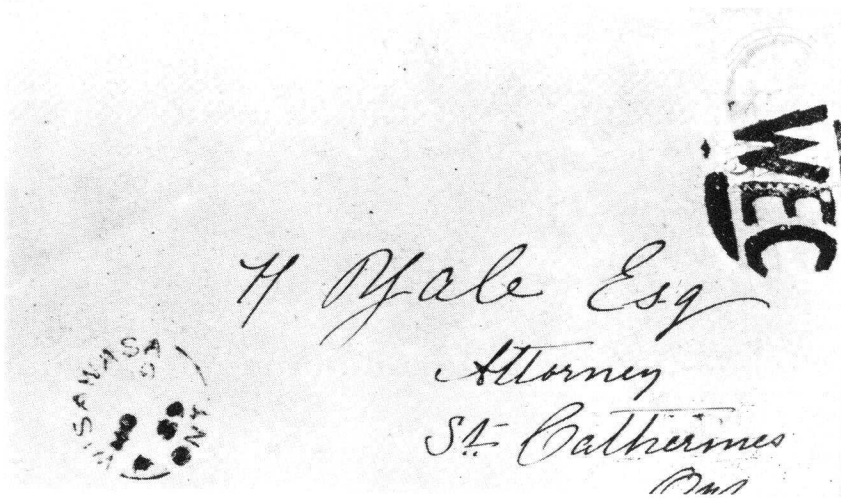 WEC
H Ryale Esq
Attorney
St. Catherines
Ont
ONT